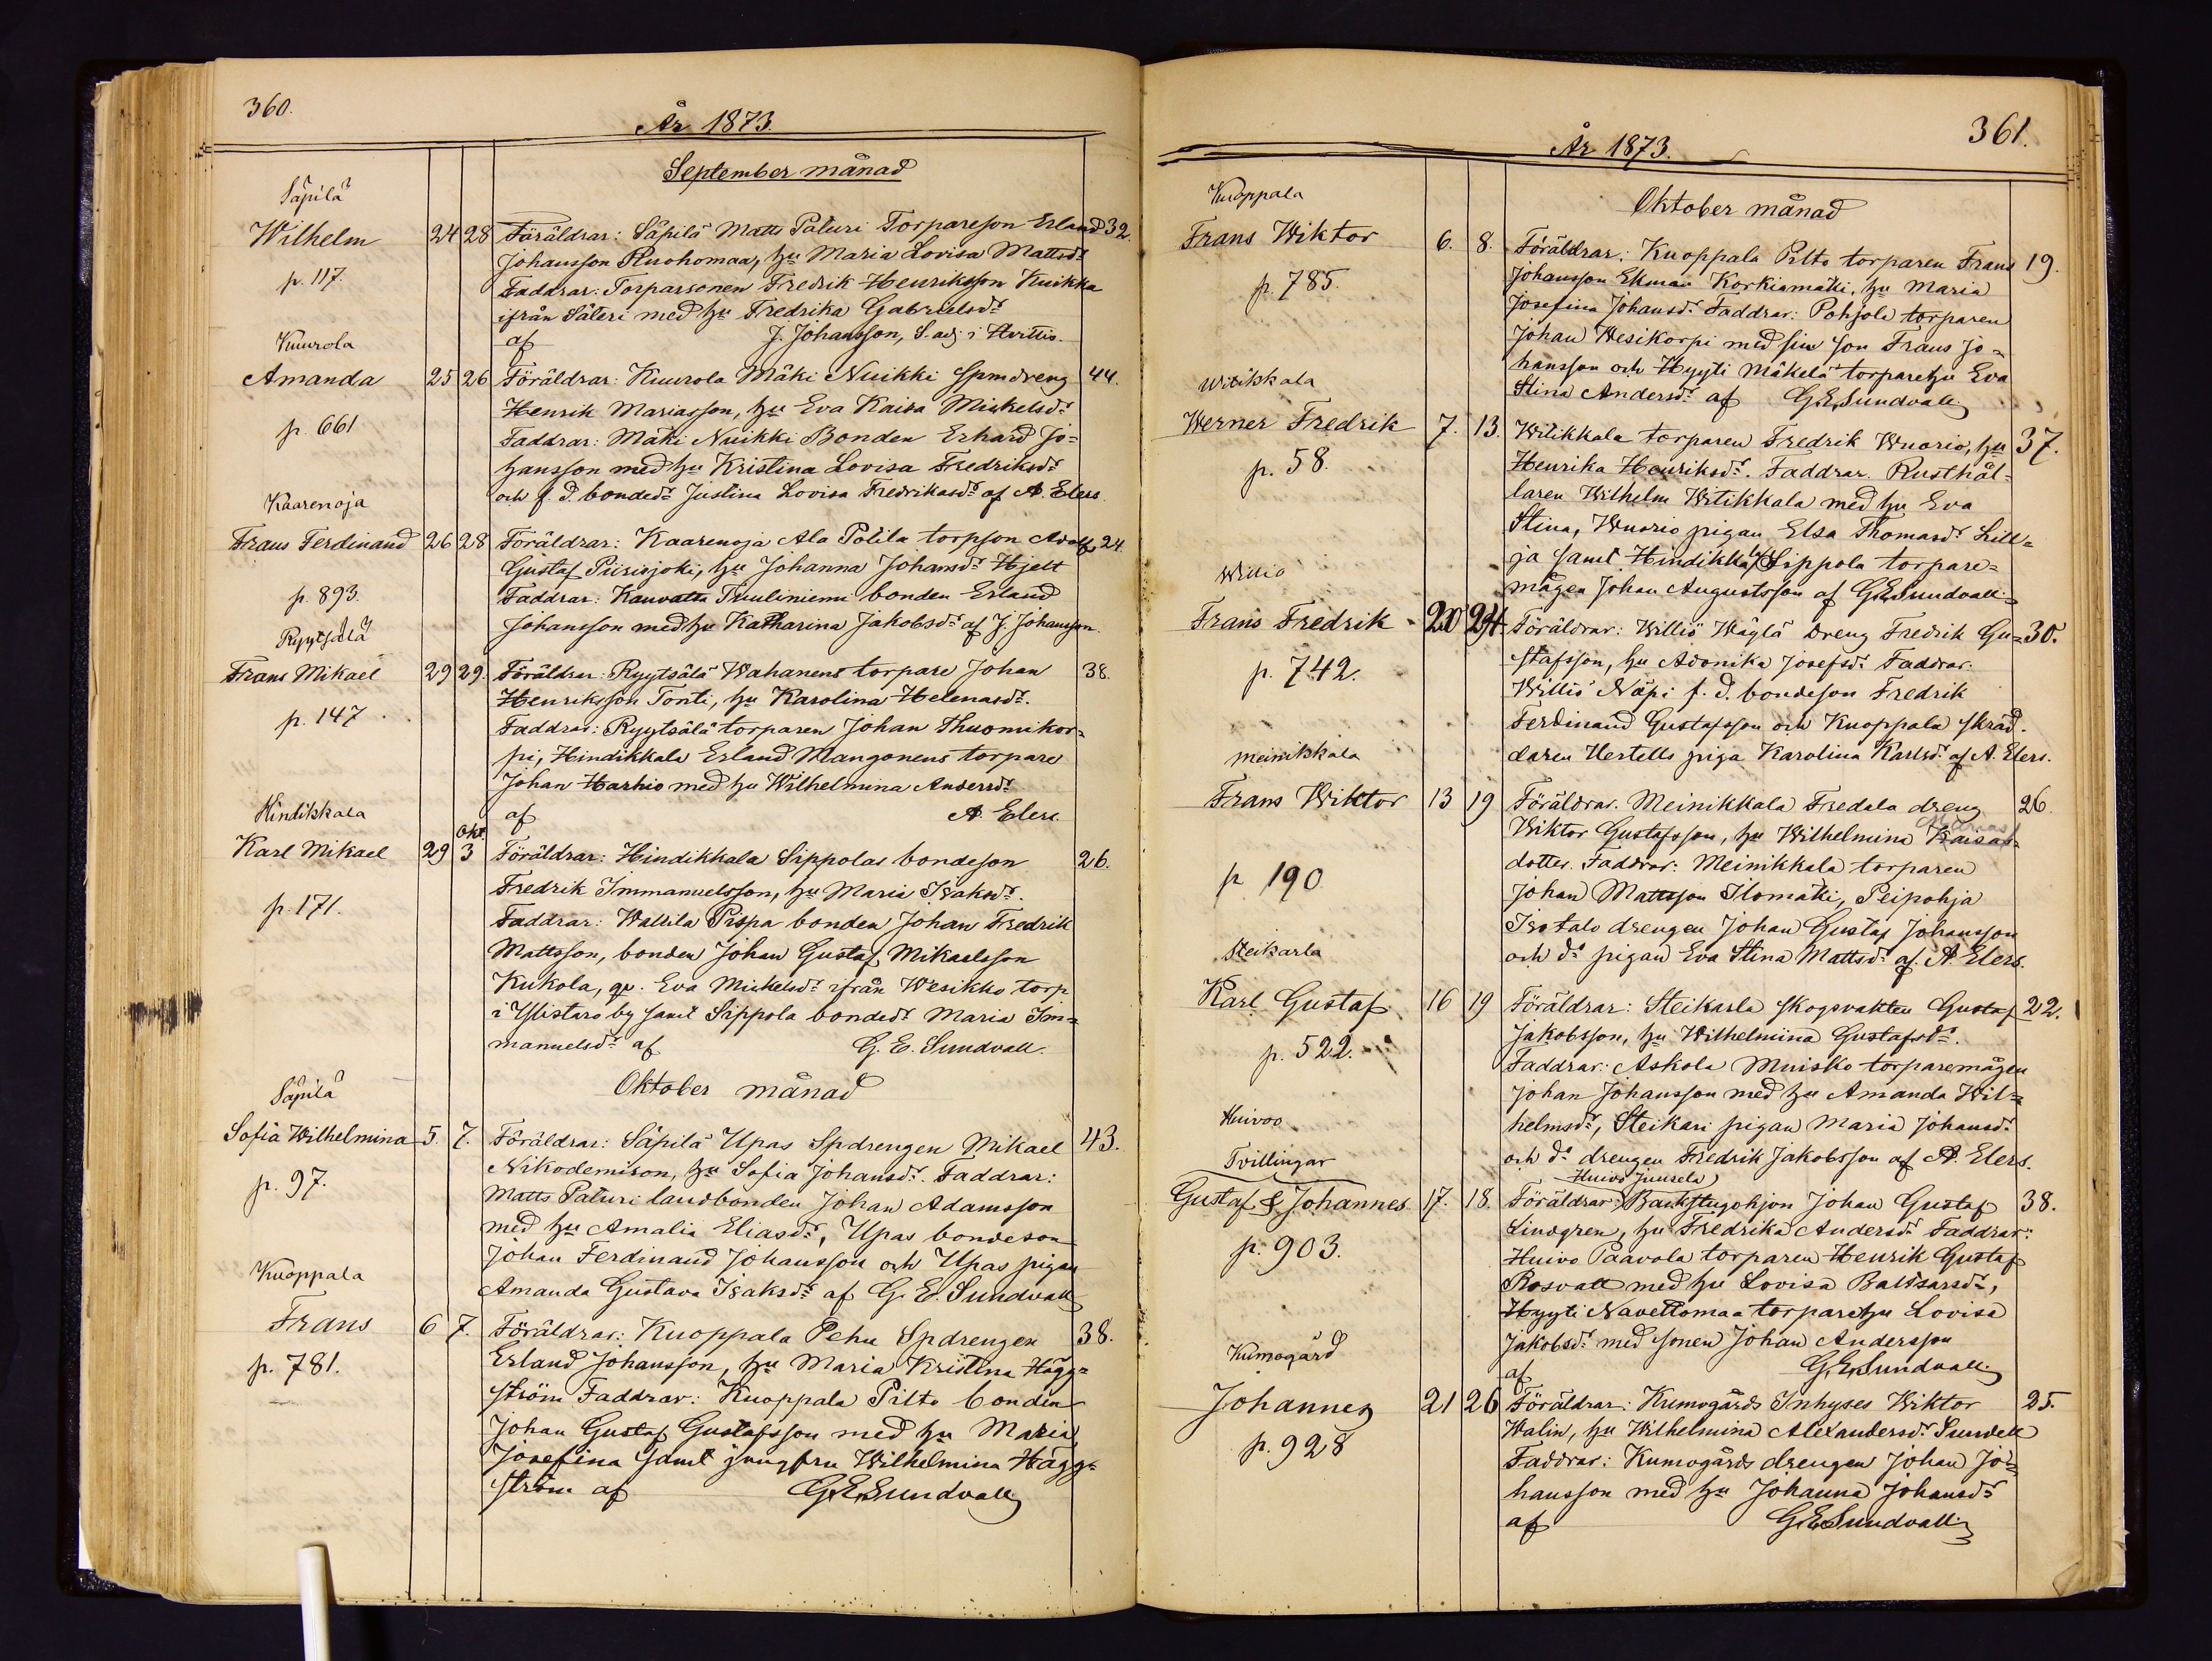 360.
År 1873.
September månad
Säpilä
Wilhelm 24 28 Föräldrar: Säpilä Matts Paturi Torpareson Erland 32.
Johansson Ruohomaa, hu Maria Lovisa Mattsdr
p. 117. Faddrar: Torparsonen Fredrik Henriksson Kuikka
ifrån Säleri med hu Fredrika Gabrielsdr
af J. Johansson, S. adj. i Hvittis.
Kuurola
Amanda 25 26 Föräldrar: Kuurola Mäki Nuikki Spmdreng 44.
Henrik Mariasson, hu Eva Kaisa Mickelsdr
p. 661 Faddrar: Mäki Nuikki Bonden Erhard Jo=
hansson med hu Kristina Lovisa Fredriksdr
och f. d. bondedr Justina Lovisa Fredrikasdr af A. Elers.
Kaarenoja
Frans Ferdinand 26 28 Föräldrar: Kaarenoja Ala Polila torpson Adolf 24.
Gustaf Piirisjoki, hu Johanna Johansdr Hjelt
p. 893. Faddrar: Kauvatsa Tuuliniemi bonden Erland
Johansson med hu Katharina Jakobsdr af J. Johansson.
Ryytsälä
Frans Mikael 29 29. Föräldrar: Ryytsälä Wahanens torpare Johan 38.
Henriksson Tonti, hu Karolina Helenasdr.
p. 147. Faddrar: Ryytsälä torparen Johan Thuomikor=
pi, Hindikkala Erland Mangonens torpare
Johan Harhio med hu Wilhelmina Andersdr
af A. Elers.
Hindikkala
Okt.
Karl Mikael 29 3 Föräldrar: Hindikkala Sippolas bondeson 26.
Fredrik Immanuelsson, hu Maria Isaksdr.
p. 171. Faddrar: Wallila Pispa bonden Johan Fredrik
Mattsson, bonden Johan Gustaf Mikaelsson
Kukola, qv. Eva Mickelsdr ifrån Wesikko torp
i Ylistaro by samt Sippola bondedr Maria Im=
manuelsdr af G. E. Sundvall.
Oktober månad
Säpilä
Sofia Wilhelmina 5. 7. Föräldrar: Säpilä Upas Spdrengen Mikael 43.
Nikodemison, hu Sofia Johansdr. Faddrar:
p. 97. Matts Paturi landbonden Johan Adamsson
med hu Amalia Eliasdr, Upas bondeson
Johan Ferdinand Johansson och Upas pigan
Amanda Gustava Isaksdr af G. E. Sundvall
Kuoppala
Frans 6 7. Föräldrar: Kuoppala Pehu Spdrengen 38.
Erland Johansson, hu Maria Kristina Hägg=
p. 781. ström Faddrar: Kuoppala Pilto bonden
Johan Gustaf Gustafsson med hu Maria
Josefina samt jungfru Wilhelmina Hägg=
ström af G. E. Sundvall
361.
År 1873.
Oktober månad
Kuoppala
Frans Wiktor 6. 8. Föräldrar: Kuoppala Pilto torparen Frans 19.
Johansson Ekman Korkiamäki, hu Maria
p. 785. Josefina Johansdr. Faddrar: Pohjola torparen
Johan Wesikorpi med sin son Frans Jo=
hansson och Hyyti Mäkelä torparehu Eva
Stina Andersdr af G. E. Sundvall
Witikkala
Werner Fredrik 7. 13. Witikkala torparen Fredrik Wuorio, hu 37.
Henrika Henriksdr. Faddrar. Rusthål=
p. 58. laren Wilhelm Witikkala med hu Eva
Stina, Wuorio pigan Elsa Thomasdr Lill=
ja samt Hindikkala Sippola torpare=
mågen Johan Augustsson af G. E. Sundvall
Williö
Frans Fredrik 20 24 Föräldrar: Williö Wäylä dreng Fredrik Gu= 30.
stafsson, hu Adonika Josefsdr Faddrar.
p. 742. Williö Näpi f. d. bondeson Fredrik
Ferdinand Gustafsson och Kuoppala skräd=
daren Hertells piga Karolina Karlsdr af A. Elers.
Meinikkala
Frans Wiktor 13 19 Föräldrar. Meinikkala Fredala dreng 26.
Marias
Wiktor Gustafsson, hu Wilhelmina Kaisas=
dotter. Faddrar: Meinikkala torparen
p 190 Johan Mattsson Ilomäki, Peipohja
Isotalo drengen Johan Gustaf Johansson
och do pigan Eva Stina Mattsdr af. A. Elers.
Steikarla
Karl Gustaf 16 19 Föräldrar: Steikarla skogsvakten Gustaf 22.
Jakobsson, hu Wilhelmina Gustafsdr.
p. 522. Faddrar: Askola Muisko torparemågen
Johan Johansson med hu Amanda Wil=
helmsdr, Steikari pigan Maria Johansdr
och do drengen Fredrik Jakobsson af A. Elers.
Huivoo
Tvillingar
Huivo Juusela
Gustaf & Johannes 17. 18. Föräldrar: Backstugohjon Johan Gustaf 38.
Lindgren, hu Fredrika Andersdr Faddrar:
p. 903. Huivo Paavola torparen Henrik Gustaf
Rosvall med hu Lovisa Baltsarsdr,
Hyyti Navettomaa torparehu Lovisa
Jakobsdr med sonen Johan Andersson
af G. E. Sundvall
Kumogård
Johannes 21 26 Föräldrar: Kumogårds Inhyses Wiktor 25.
Walin, hu Wilhelmina Alexandersdr Sundell
p. 928 Faddrar: Kumogårds drengen Johan Jo=
hansson med hu Johanna Johansdr
af G. E. Sundvall